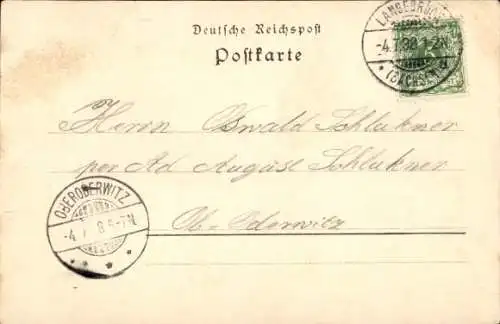 Deutsche Reichspost
Postkarte
LANGEBRÜCK
-4.7.98 1-2N
* (SACHSEN)
Herrn Oswald Schlukner
per Ad August Schlukner
Ob-Oderwitz
OBERODERWITZ
-4.7. 8 6-7N